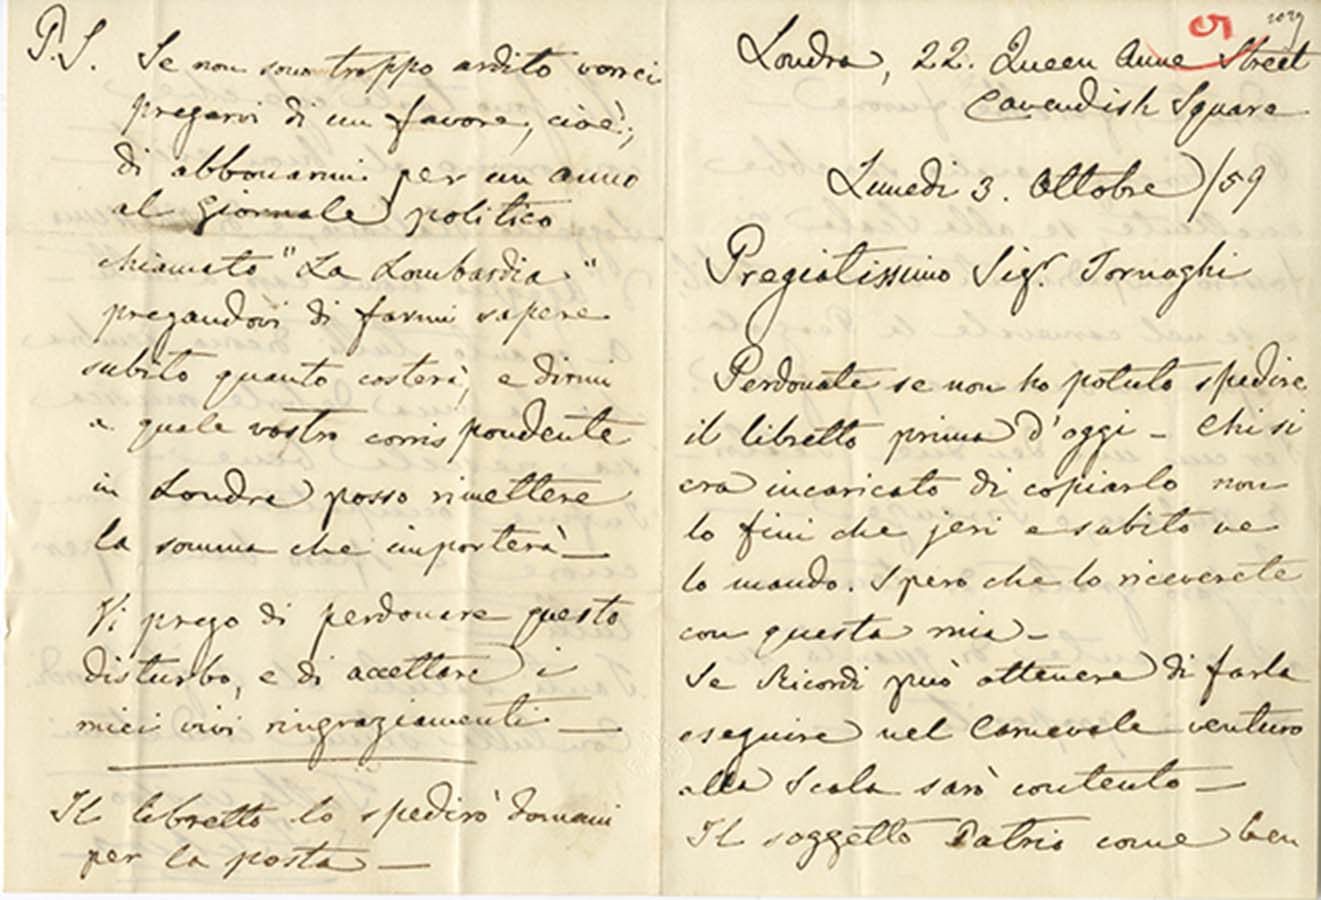 P.S. Se non sono troppo ardito vorrei
pregarvi di un favore, cioè,
di abbonarmi per un anno
al Giornale politico
chiamato "La Lombardia"
pregandovi di farmi sapere
subito quanto costerà, e dirmi
a quale vostro corrispondente
in Londra posso rimettere
la somma che importerà —
Vi prego di perdonare questo
disturbo, e di accettare i
miei vivi ringraziamenti —
Il libretto lo spedirò domani
per la posta —
5
Londra, 22. Queen Anne Street
Cavendish Square
Lunedi 3. Ottobre /59
Pregiatissimo Sigr. Tornaghi
Perdonate se non ho potuto spedire
il libretto prima d'oggi - Chi si
era incaricato di copiarlo non
lo finì che jeri e subito ve
lo mando. Spero che lo riceverete
con questa mia -
Se Ricordi può ottenere di farla
eseguire nel Carnevale venturo
alla Scala sarò contento —
Il soggetto Patrio come ben